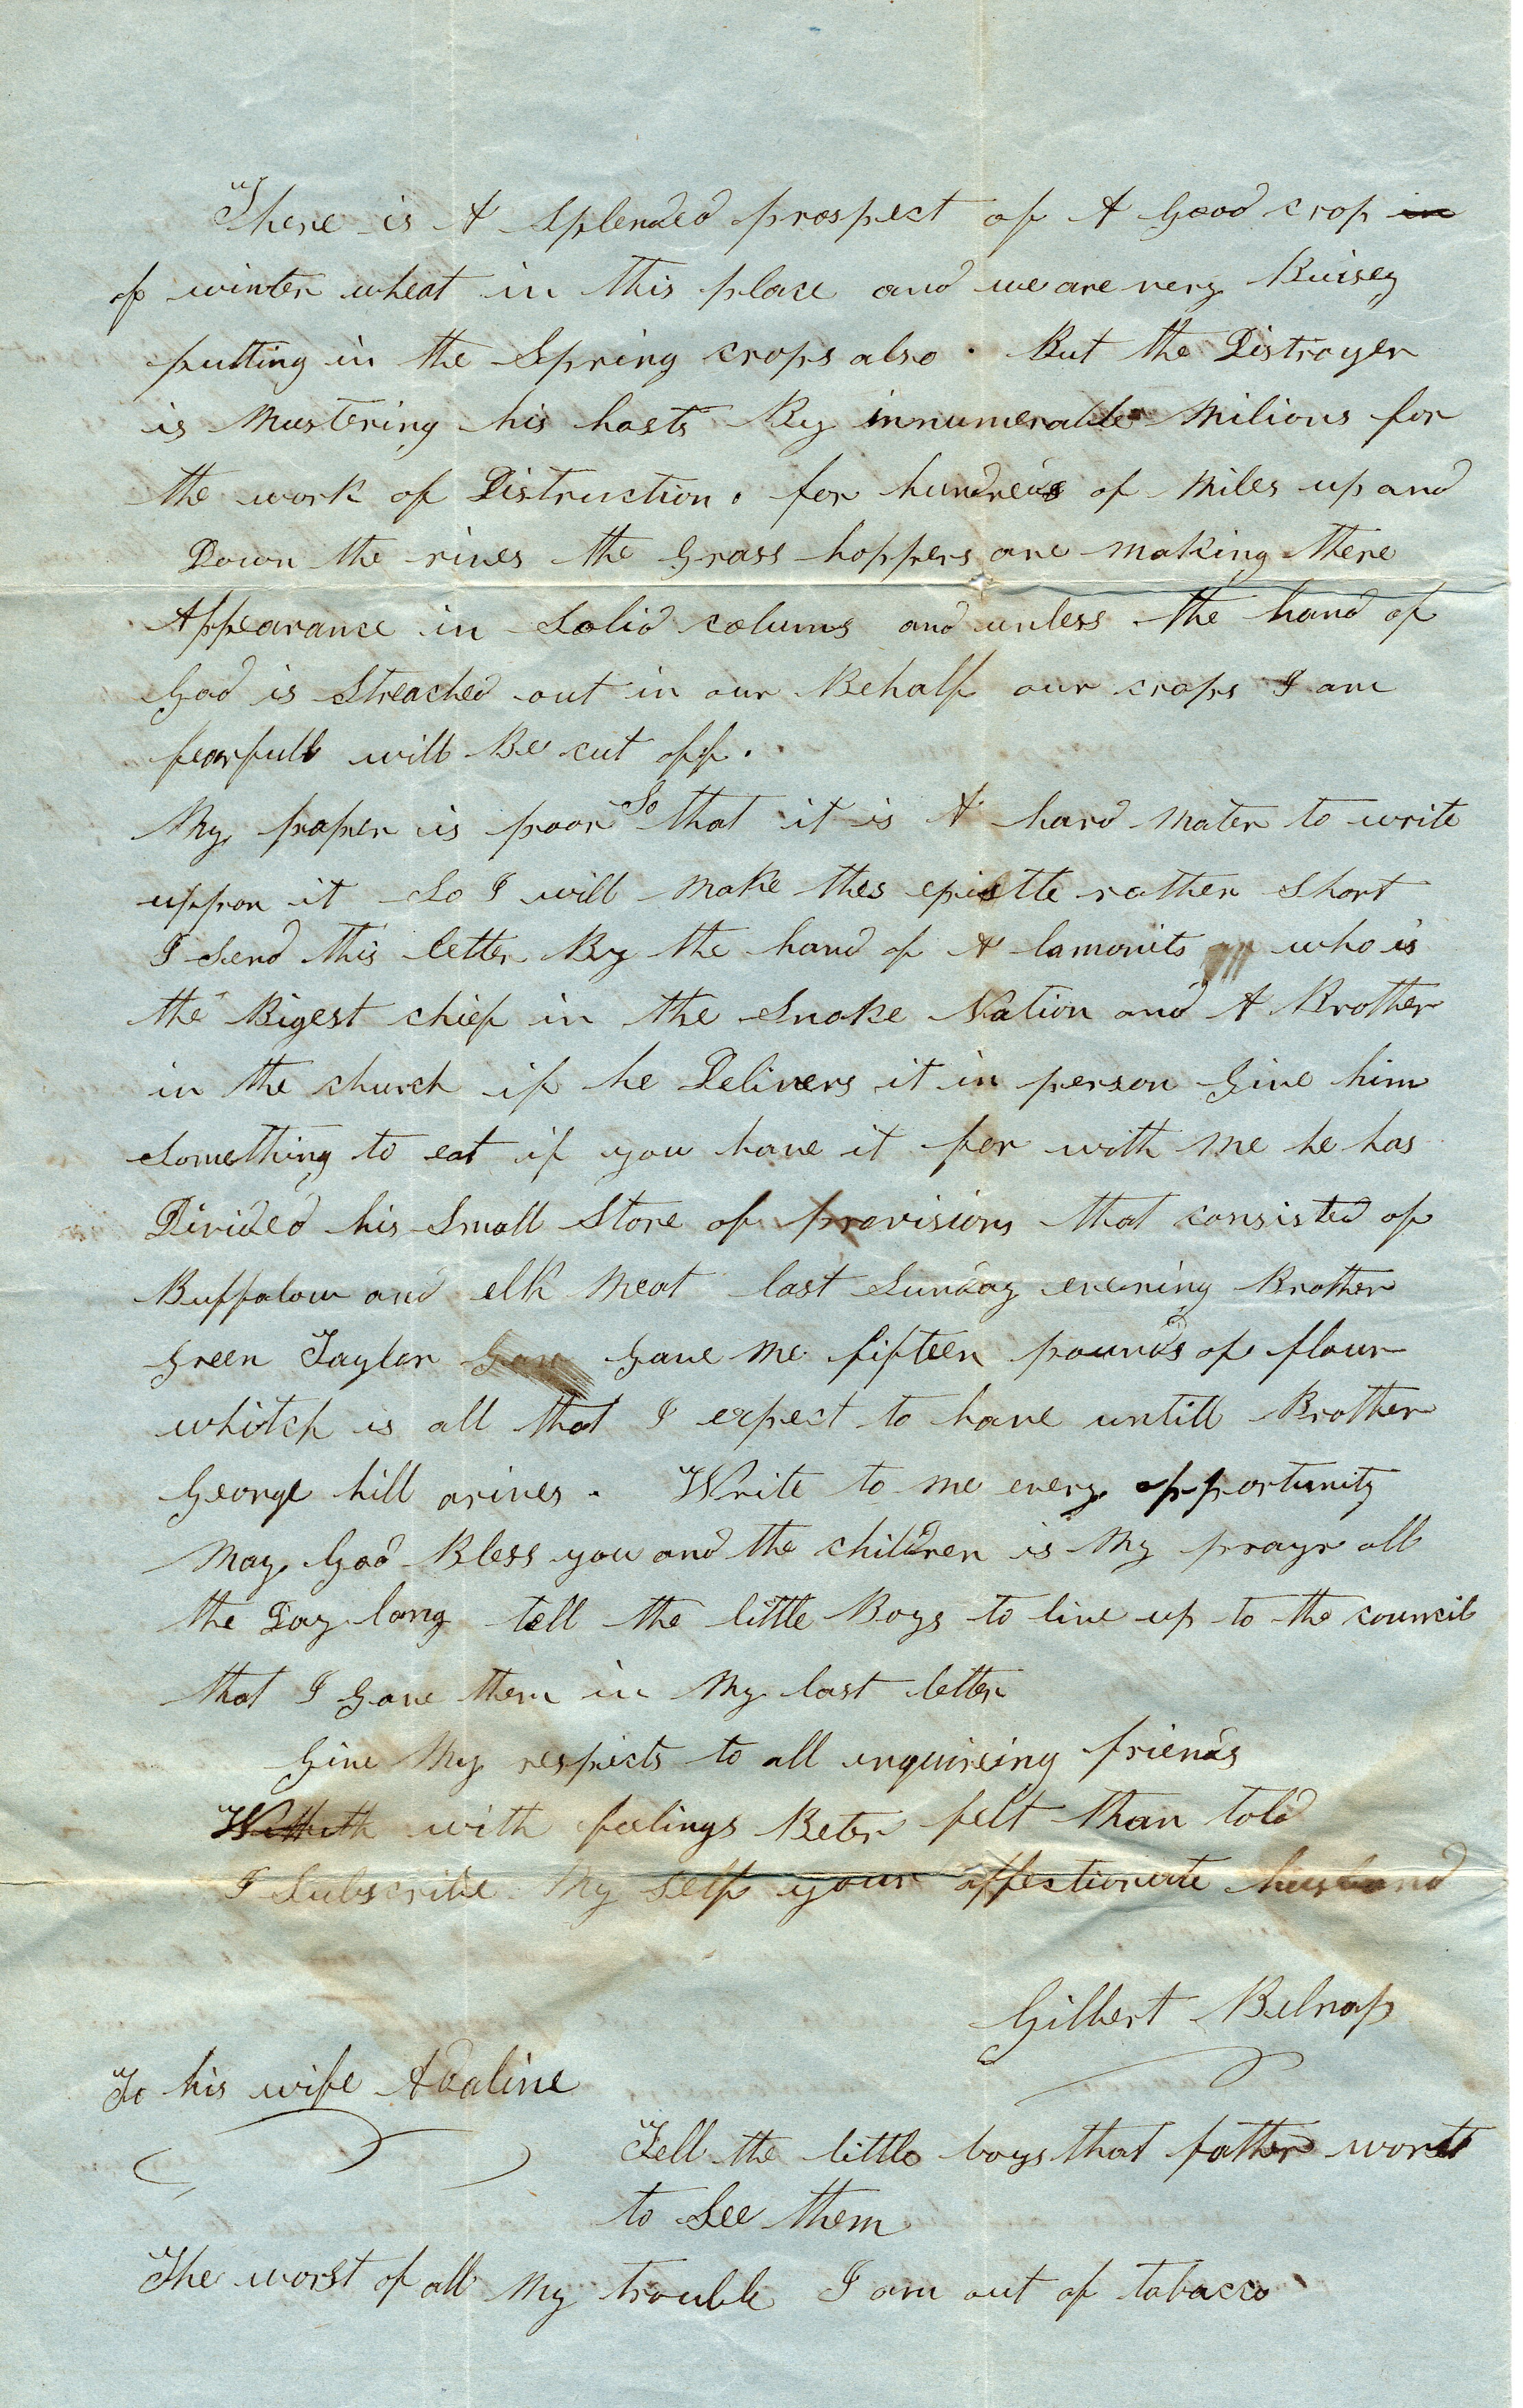 There is A Splended prospect of A Good crop in
of winter wheat in this place and we are very Buisey
putting in the Spring crops also . But the Distroyer
is Mustering his hosts By innumerable Milions for
the work of Distruction . for hundreds of Miles up and
Down the river the Grass hoppers are making there
Appearance in Solid colums and unless the hand of
God is Streached out in our Behalf our crops I am
fearfull will Be cut off .
My paper is poor So that it is A hard Mater to write
uppon it So I will Make thes epistle rather Short
I Send this letter By the hand of A lamonits who is
the Bigest chief in the Snake Nation and A Brother
in the church if he Delivers it in person Give him
Something to eat if you have it for with Me he has
Divided his Small Store of provisions that consisted of
Buffalow and elk Meat last Sunday evening Brother
Green Taylor Gav Gave Me fifteen pounds of flour
whitch is all that I expect to have untill Brother
George hill arives . Write to me every opportunity
May God Bless you and the children is My prayr all
the Day long tell the little Boys to live up to the council
that I Gave them in My last letter
Give My respects to all inquireing friends
with feelings Beter felt than told
I Subscribe My Self your affectionate husband
Gilbert Belnap
To his wife Adaline
Tell the little boys that father wants
to See them
The worst of all My trouble I am out of tobacco